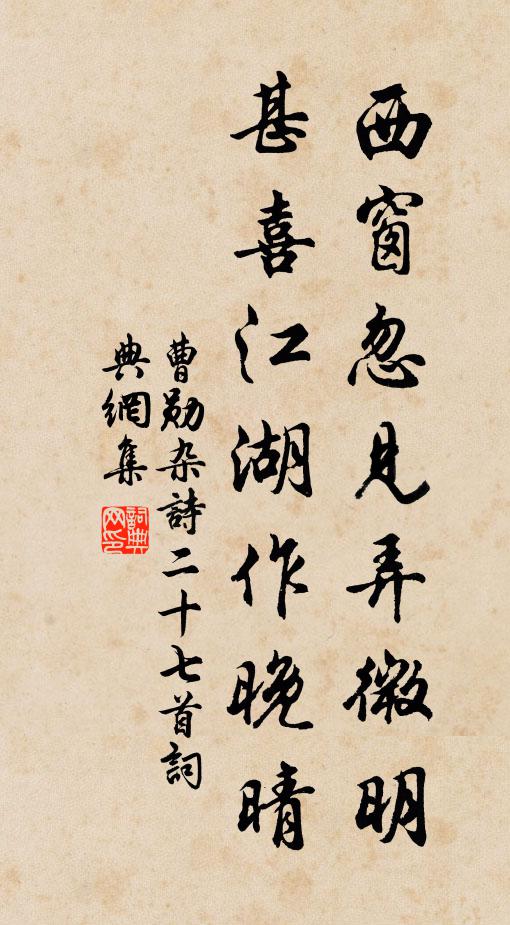 西窗忽見弄微明
甚喜江湖作晚晴
曹勋杂詩二十七首詞
典網集
詞典網印